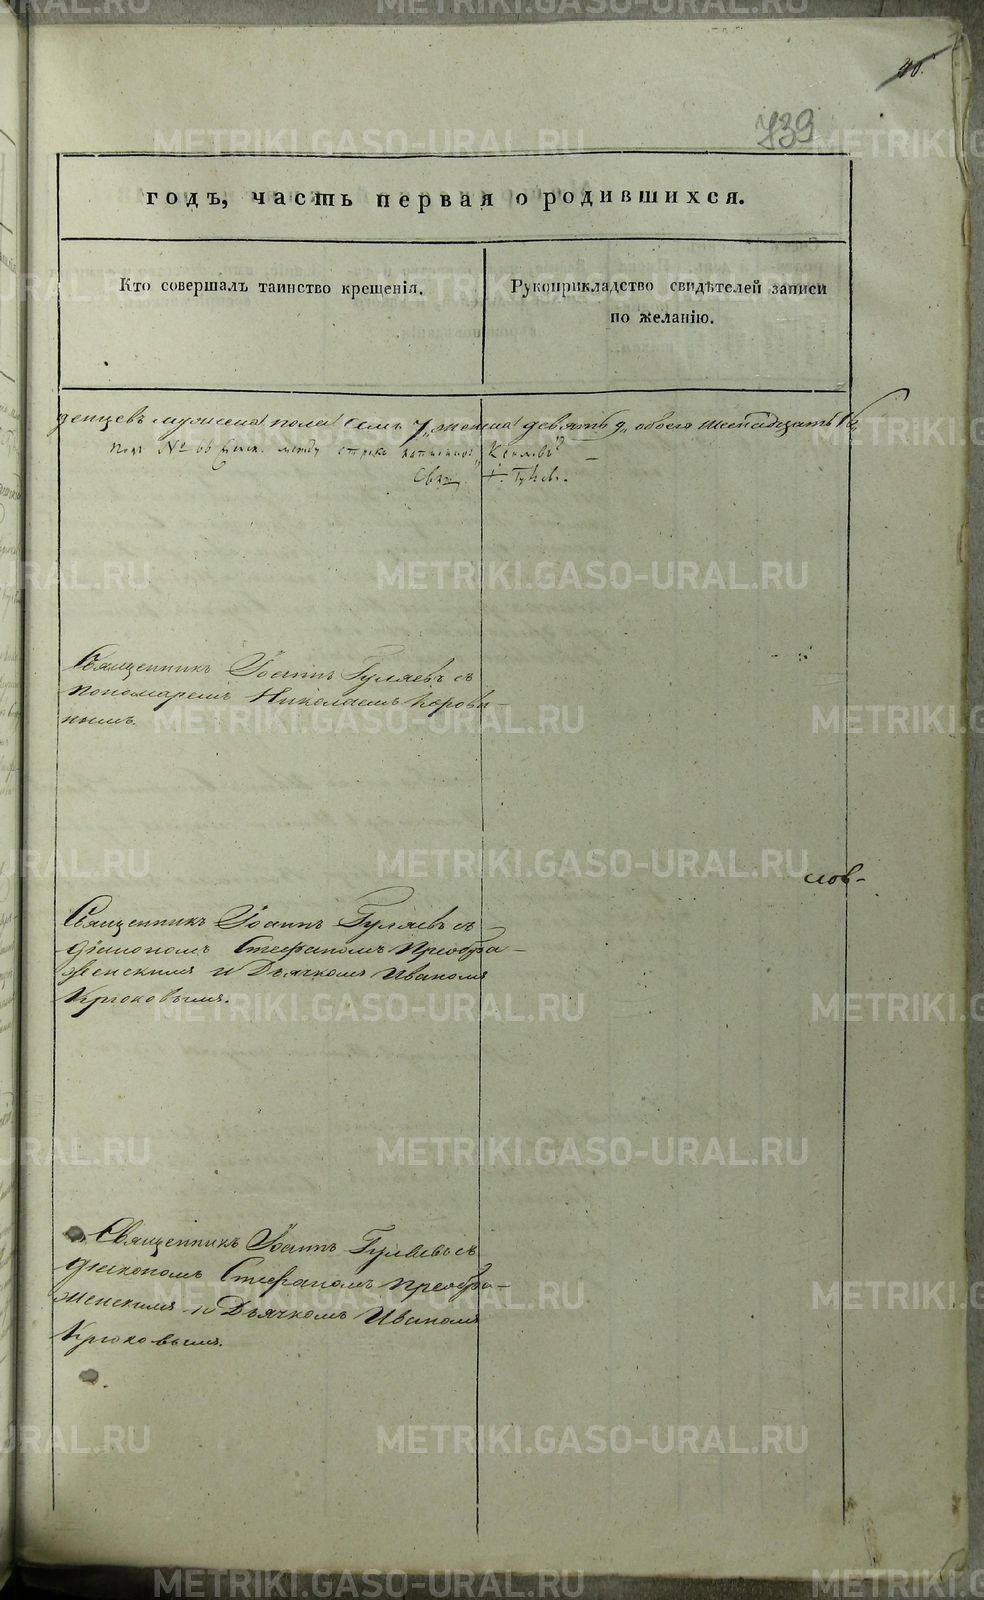 40.
739
годъ, часть первая о родившихся.
Кто совершалъ таинство крещенія.
Рукоприкладство свидѣтелей записи
по желанію.
денцевъ мужеска пола семь 7, женска девять 9, обоего шестнадцать 16,
подъ № 66 между строкъ написанное
Свящ. І. Гуляевъ.
Священникъ Іоаннъ Гуляевъ съ
пономаремъ Николаемъ Корова-
нымъ.
слов-
Священникъ Іоаннъ Гуляевъ съ
діакономъ Стефаномъ Преобра-
женскимъ и Дьячкомъ Иваномъ
Крюковымъ.
Священникъ Іоаннъ Гуляевъ съ
діакономъ Стефаномъ Преобра-
женскимъ и Дьячкомъ Иваномъ
Крюковымъ.
METRIKI.GASO-URAL.RU